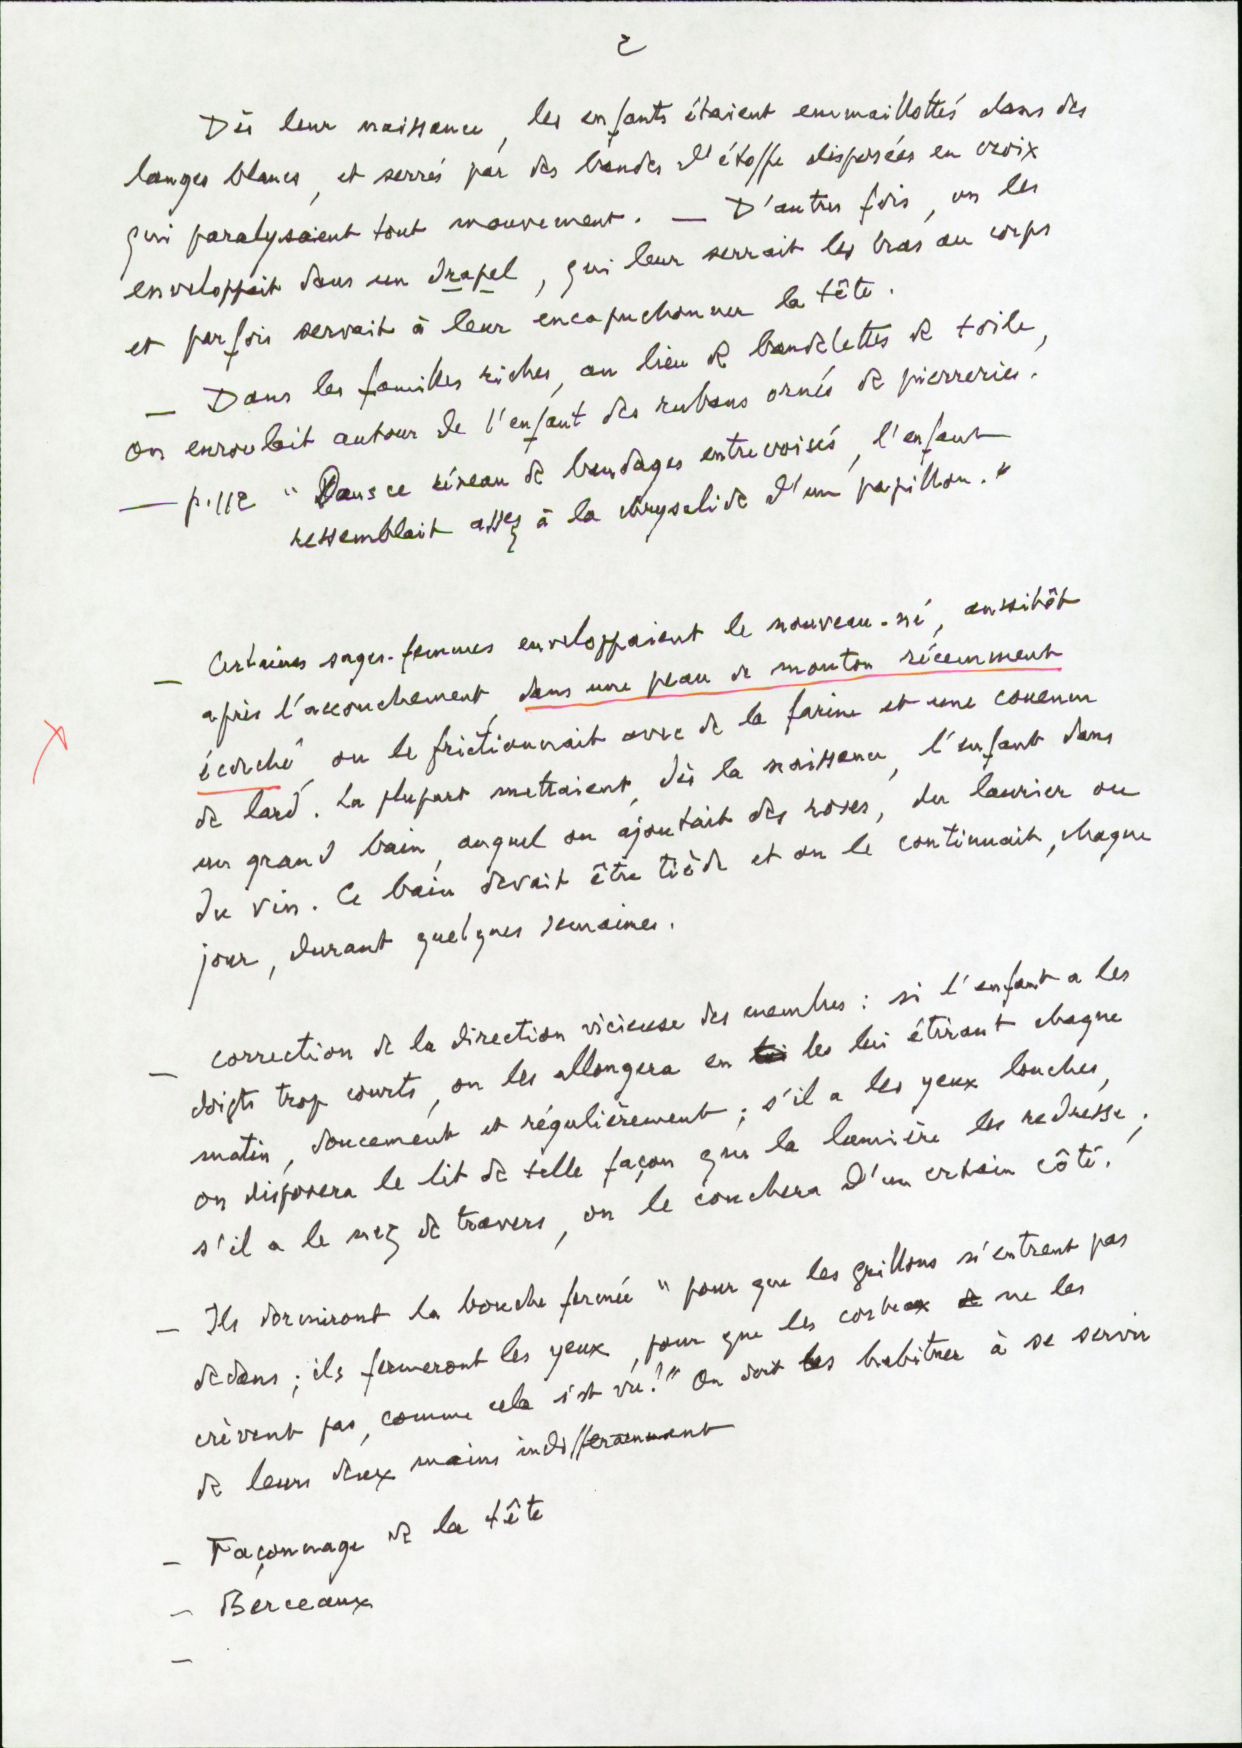 2
Dès leur naissance, les enfants étaient emmaillottés dans des
langes blancs, et serrés par des bandes d'étoffe disposées en croix
qui paralysaient tout mouvement. — D'autres fois, on les
enveloppait dans un drapel, qui leur serrait les bras au corps
et parfois servait à leur encapuchonner la tête.
— Dans les familles riches, au lieu de bandelettes de toile,
on enroulait autour de l'enfant des rubans ornés de pierreries.
— p. 112 "Dans ce réseau de bandages entrecroisés, l'enfant
ressemblait assez à la chrysalide d'un papillon."
— Certaines sages-femmes enveloppaient le nouveau-né, aussitôt
après l'accouchement, dans une peau de mouton récemment
écorché, ou le frictionnait avec de la farine et une couenne
de lard. La plupart mettaient, dès la naissance, l'enfant dans
un grand bain, auquel on ajoutait des roses, du laurier ou
du vin. Ce bain devait être tiède et on le continuait, chaque
jour, durant quelques semaines.
— correction de la direction vicieuse des membres : si l'enfant a les
doigts trop courts, on les allongera en les lui étirant chaque
matin, doucement et régulièrement ; s'il a les yeux louches,
on disposera le lit de telle façon que la lumière les redresse ;
s'il a le nez de travers, on le couchera d'un certain côté.
— Ils dormiront la bouche fermée "pour que les grillons n'entrent pas
dedans ; ils fermeront les yeux, pour que les corbeax ne les
crèvent pas, comme cela s'est vu !" On doit les habituer à se servir
de leurs deux mains indifféremment
— Façonnage de la tête
— Berceaux
—